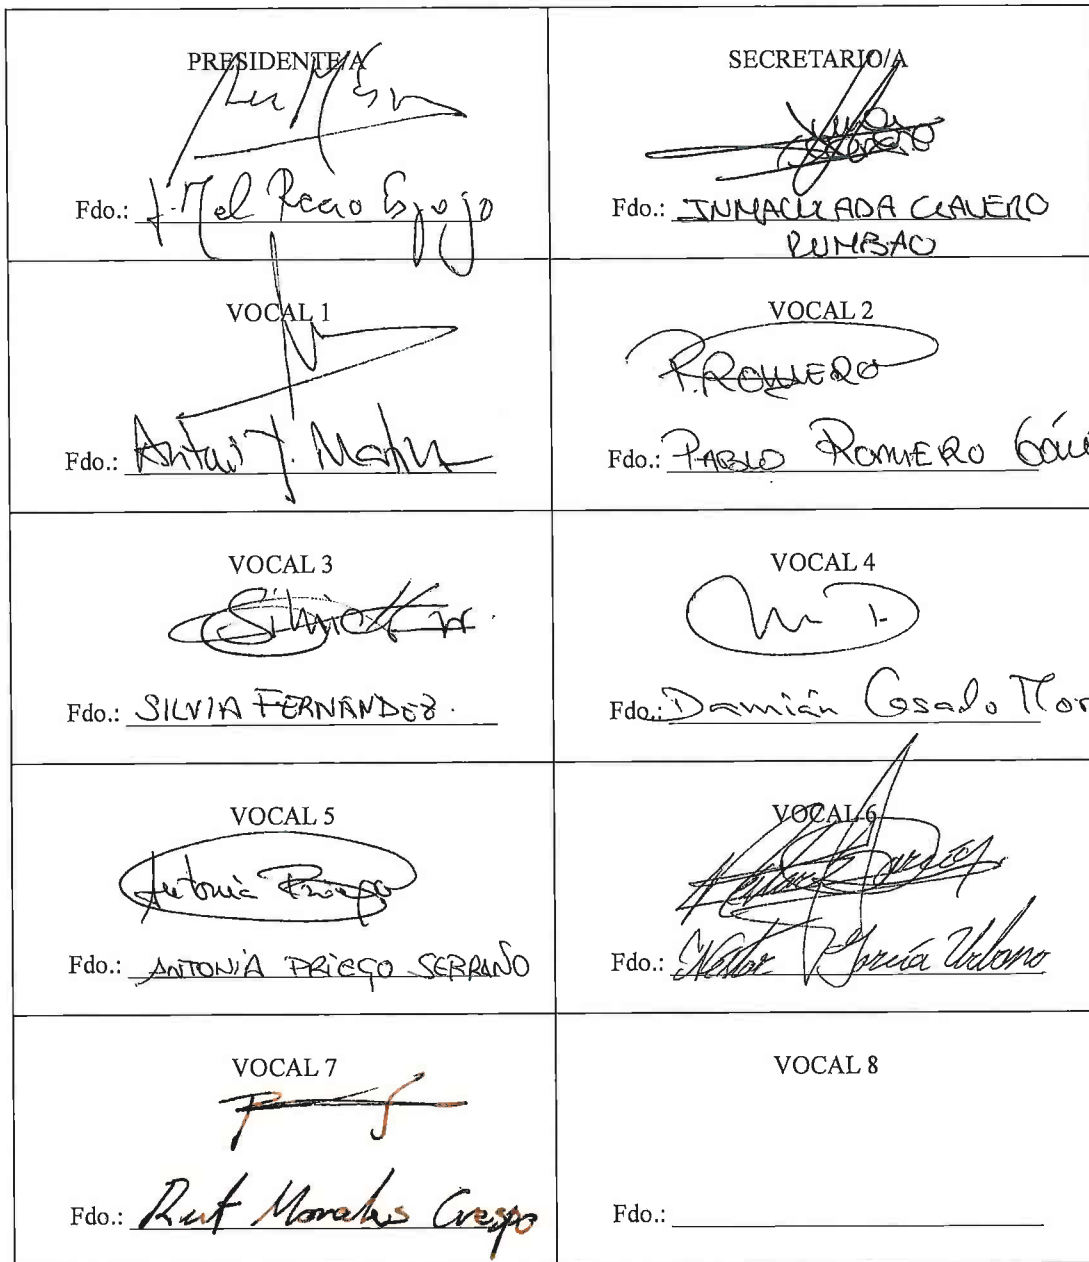 PRESIDENTE/A
Fdo.: J. Mel Recio Espejo
SECRETARIO/A
Fdo.: INMACULADA CLAVERO
RUMBAO
VOCAL 1
Fdo.: Antonio J. Martín
VOCAL 2
P. ROMERO
Fdo.: PABLO ROMERO
VOCAL 3
Silvia
Fdo.: SILVIA FERNÁNDEZ.
VOCAL 4
Fdo.: Damián Casado
VOCAL 5
Antonia Priego
Fdo.: ANTONIA PRIEGO SERRANO
VOCAL 6
Néstor García
Fdo.: Néstor García Urbano
VOCAL 7
Fdo.: Rut Morales Crespo
VOCAL 8
Fdo.: